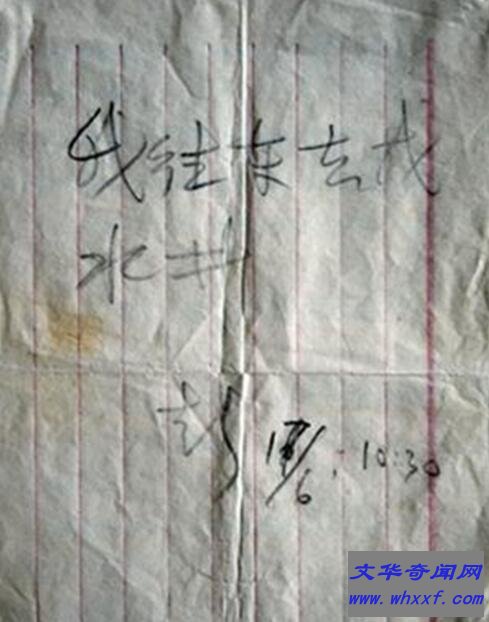 我往东去找
水井
彭 17/6. 10:30
文华奇闻网
www.whxxf.com